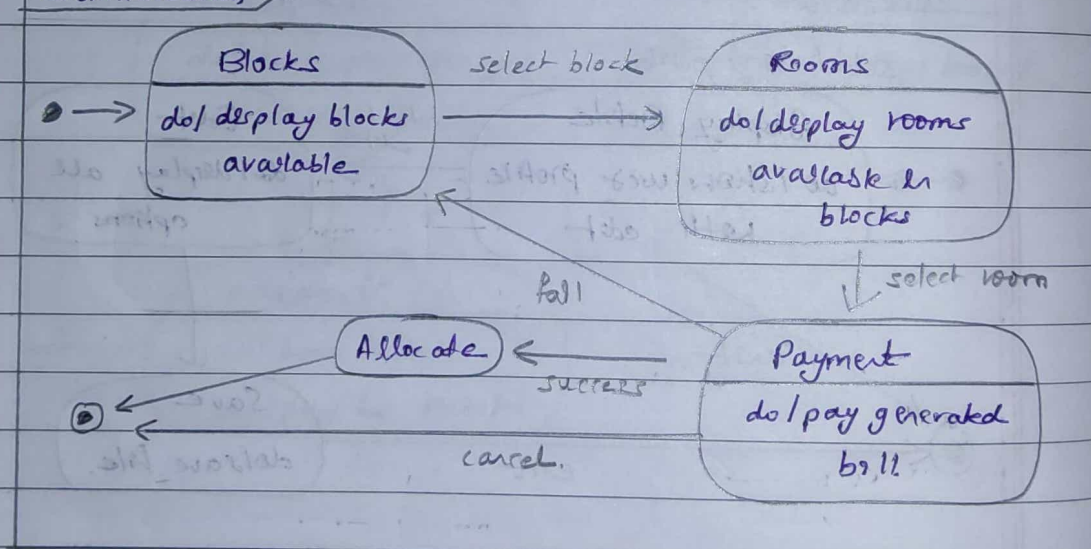 Blocks
do/ display blocks
available
select block
Rooms
do/ display rooms
available in
blocks
select room
fail
Allocate
success
Payment
do/pay generated
bill
cancel.